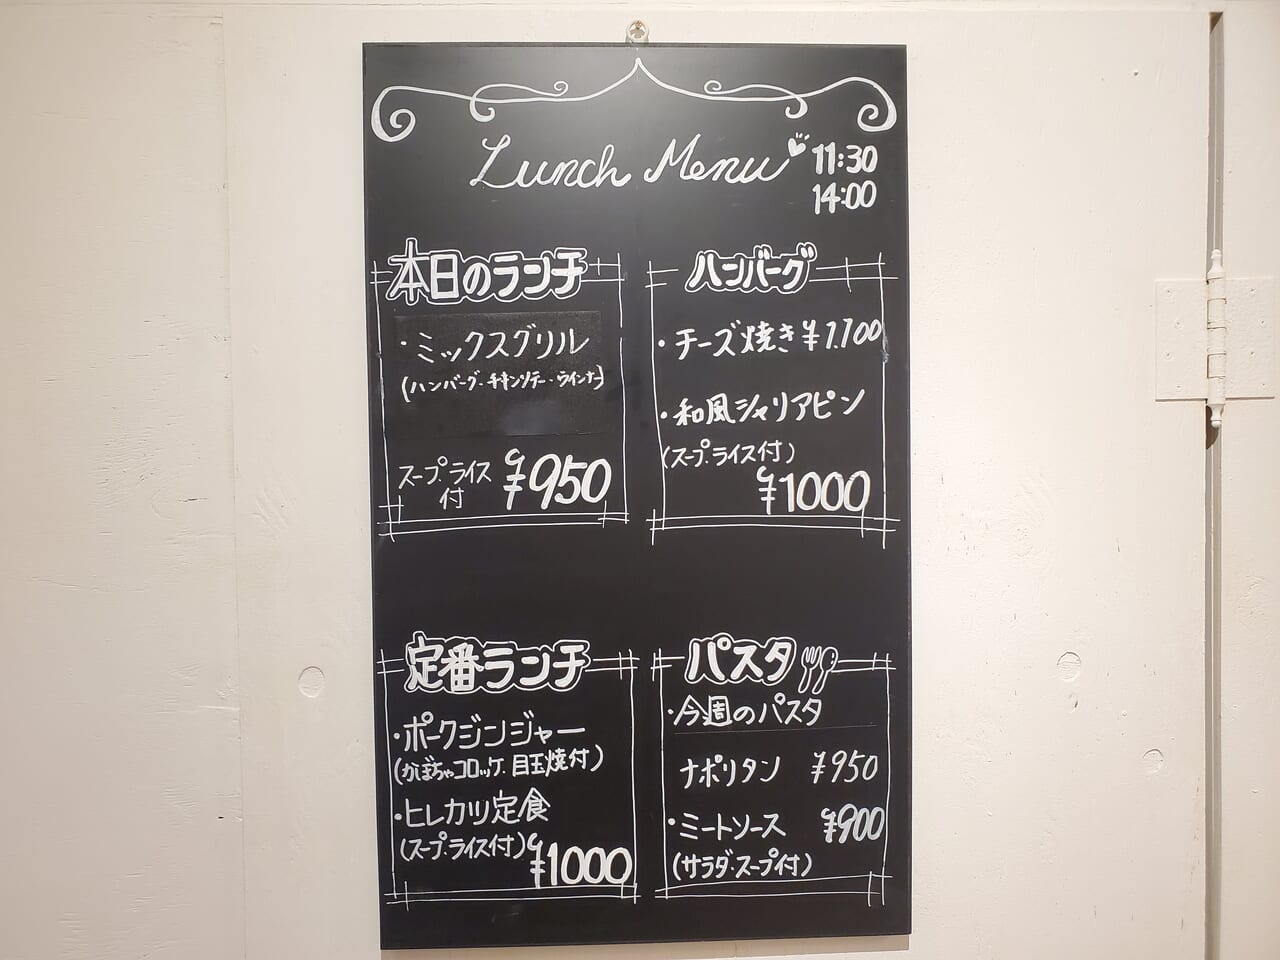 Lunch Menu
11:30
14:00
本日のランチ
・ミックスグリル
(ハンバーグ・チキンソテー・ウインナー)
スープ・ライス
付
¥950
ハンバーグ
・チーズ焼き ¥1.100
・和風シャリアピン
(スープ・ライス付)
¥1000
定番ランチ
・ポークジンジャー
(かぼちゃコロッケ・目玉焼付)
・ヒレカツ定食
(スープ・ライス付)
¥1000
パスタ
・今週のパスタ
ナポリタン ¥950
・ミートソース ¥900
(サラダ・スープ付)